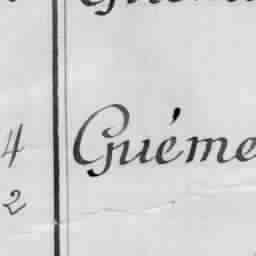 4 Guéme
2